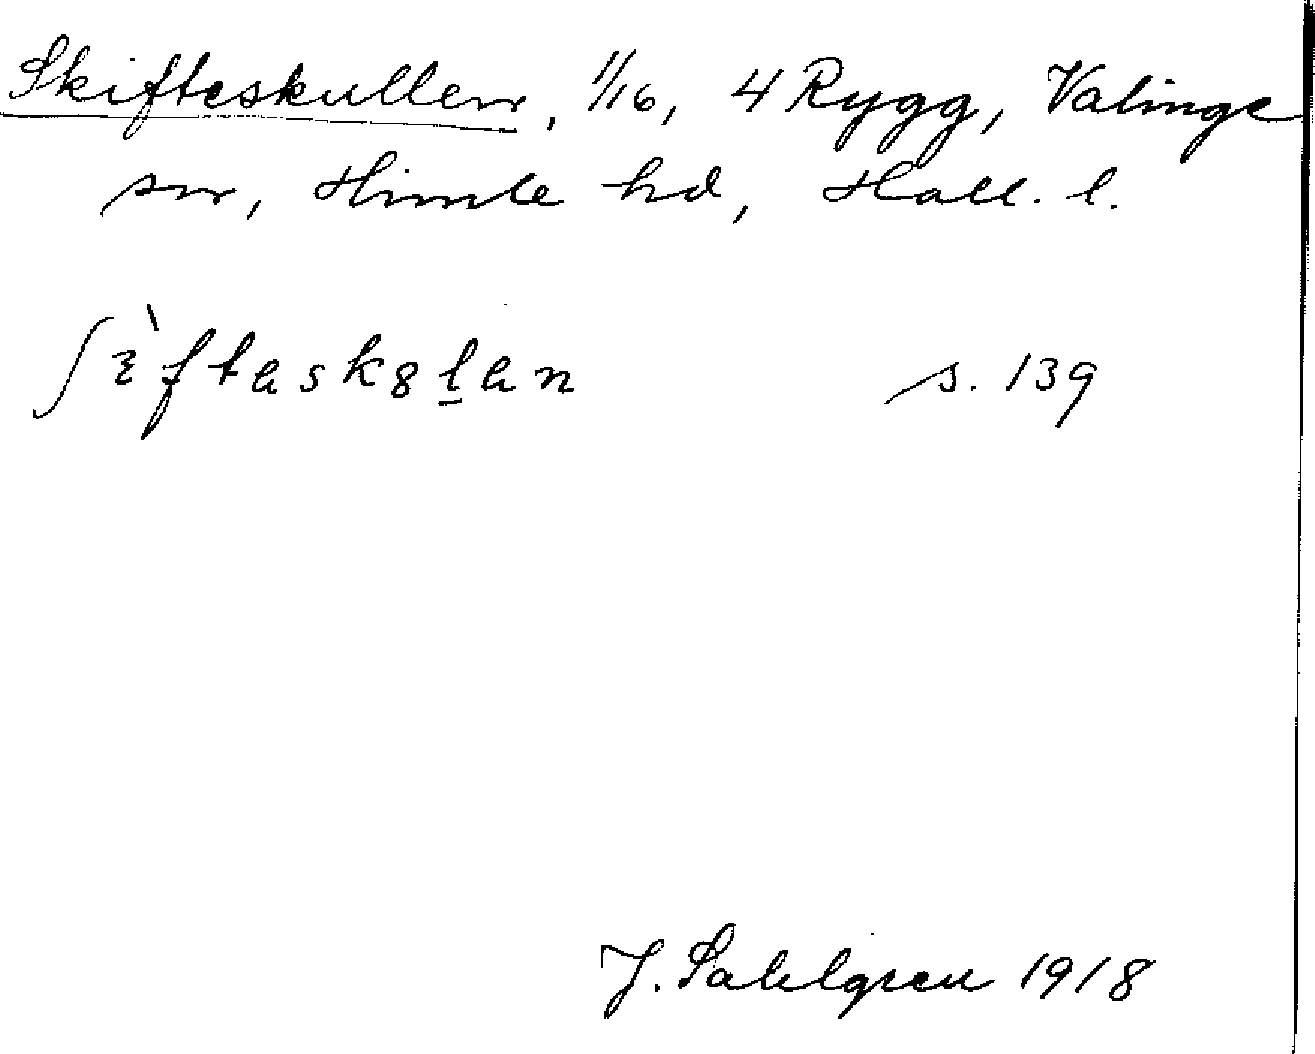 Skifteskullen, 1/16, 4 Rygg, Valinge
sn, Himle hd, Hall. l.
ʃìftask8lan s. 139
J. Sahlgren 1918